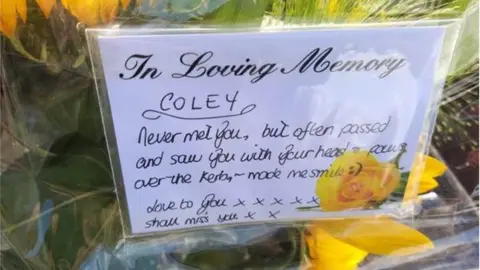 In Loving Memory
COLEY
Never met you, but often passed
and saw you with your head + paws
over the kerb, - made me smile :)
Love to you x x x x x
shall miss you x x